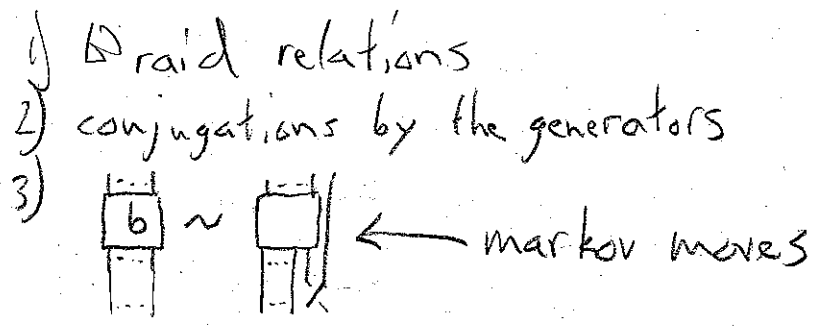 1) Braid relations
2) conjugations by the generators
3) b ~ ← markov moves